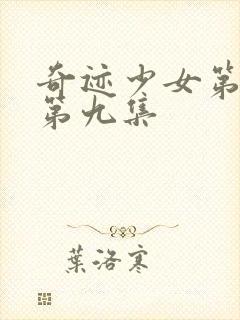 奇迹少女第
第九集
葉洛寒